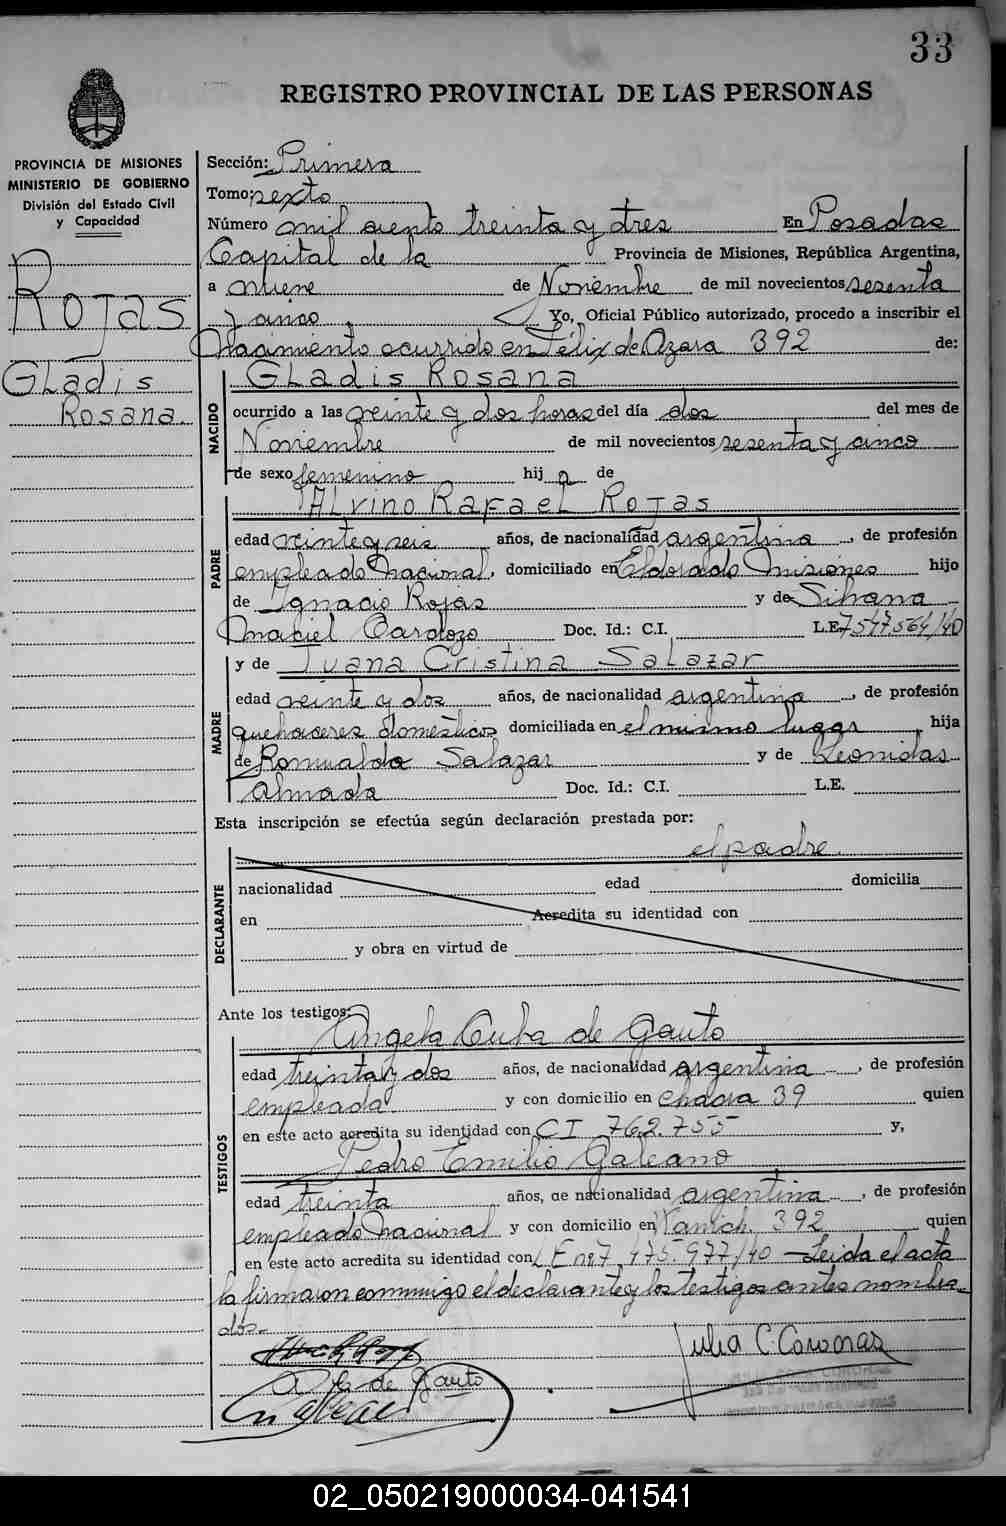 33
REGISTRO PROVINCIAL DE LAS PERSONAS
PROVINCIA DE MISIONES
MINISTERIO DE GOBIERNO
División del Estado Civil
y Capacidad
Rojas
Gladis
Rosana
Sección: Primera
Tomo: sexto
Número mil ciento treinta y tres En Posadas
Capital de la Provincia de Misiones, República Argentina,
a nueve de Noviembre de mil novecientos sesenta
y cinco Yo, Oficial Público autorizado, procedo a inscribir el
Nacimiento ocurrido en Félix de Azara 392 de:
NACIDO
Gladis Rosana
ocurrido a las veinte y dos horas del día dos del mes de
Noviembre de mil novecientos sesenta y cinco
de sexo femenino hij a de
PADRE
Alvino Rafael Rojas
edad veinte y seis años, de nacionalidad argentina, de profesión
empleado nacional, domiciliado en Eldorado Misiones hijo
de Ignacio Rojas y de Silvana
Mabiel Cardozo Doc. Id.: C.I. L.E. 7547564/40
MADRE
y de Juana Cristina Salazar
edad veinte y dos años, de nacionalidad argentina, de profesión
quehaceres domésticos domiciliada en el mismo lugar hija
de Romualdo Salazar y de Leonidas
Almada Doc. Id.: C.I. L.E.
Esta inscripción se efectúa según declaración prestada por:
el padre
DECLARANTE
nacionalidad edad domicilia
en Acredita su identidad con
y obra en virtud de
Ante los testigos:
TESTIGOS
Angela Cuba de Gauto
edad treinta y dos años, de nacionalidad argentina, de profesión
empleada y con domicilio en chacra 39 quien
en este acto acredita su identidad con CI 762.755 y,
Pedro Emilio Galeano
edad treinta años, de nacionalidad argentina, de profesión
empleado nacional y con domicilio en 392 quien
en este acto acredita su identidad con LE nº 7.475.977/40 - Leida el acta
la firmaron conmigo el declarante y los testigos antes nombra
dos.-
Julia C. Coronas
de Gauto
02_050219000034-041541